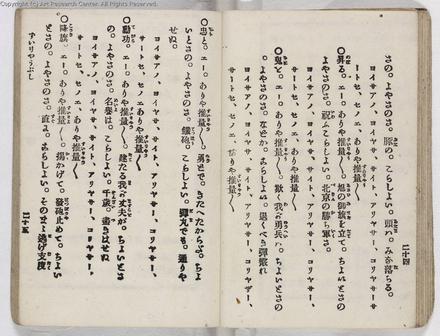 Copyright (c) Art Research Center. All Rights Reserved.
二十四
さの。よやさのさ。豚の。こらしよい。頭り。みな落ちる。
コイサアノ、コイヤサ、サイト、アリヤサー、コリヤサー、
サートセ、セノエ、ありや推量〱。
○昇る。エー。ありや推量〱。旭の御旗を立て。ちよいとさの
よやさのさ。祝ふこらしよい。北京の勝ち軍さ。
コイサアノ、コイヤサ、サイト、アリヤサー、コリヤサー、
サートセ、セノエ、ありや推量〱。
○鬼と。エー。ありや推量〱。欺く我勇兵に。ちよいとさの
コイサアノ、コイヤサ、サイト、アリヤサー、コリヤサー、
サートセ、セノエ、ありや推量〱。
○忠と。エー。ありや推量〱。勇とで。きたへたからだ。ちよ
いとさの。よやさのさ。鐵砲。こらしよい。彈丸でも。通りや
せぬ。
コイサアノ、コイヤサ、サイト、アリヤサー、コリヤサー、
サートセ、セノエ、ありや推量〱。
○勳功。エー。ありや推量〱。建たる我が夫が。ちよいとさ
の。よやさのさ。名譽は。こらしよい。千歳。盡きはせぬ
コイサアノ、コイヤサ、サイト、アリヤサー、コリヤサー、
サートセ、セノエ、ありや推量〱。
○降旗。エー。ありや推量〱。揭かげて。發砲止めて。ちよい
とさの。よやさのさ。直ぐ。こらしよい。そのまま逃げ支度
すいりやうぶし
二十五